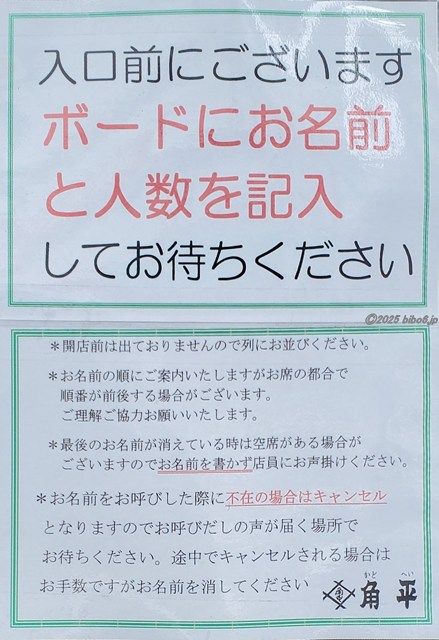 入口前にございます
ボードにお名前
と人数を記入
してお待ちください
©2025 bibo6.jp
＊開店前は出ておりませんので列にお並びください。
＊お名前の順にご案内いたしますがお席の都合で
順番が前後する場合がございます。
ご理解ご協力お願いいたします。
＊最後のお名前が消えている時は空席がある場合が
ございますのでお名前を書かず店員にお声掛けください。
＊お名前をお呼びした際に不在の場合はキャンセル
となりますのでお呼びだしの声が届く場所で
お待ちください。途中でキャンセルされる場合は
お手数ですがお名前を消してください
かど へい
角平